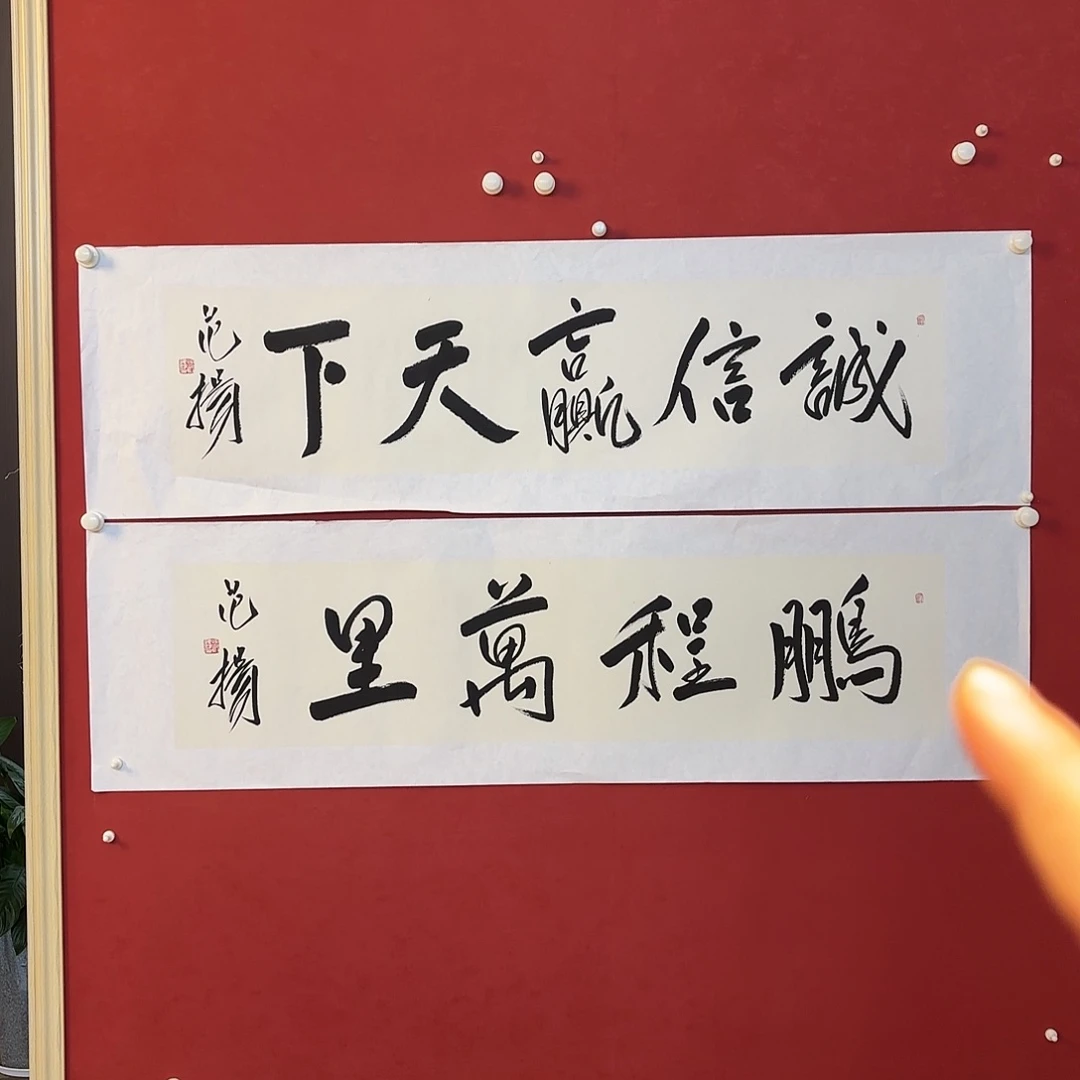 誠信贏天下
范揚
鵬程萬里
范揚